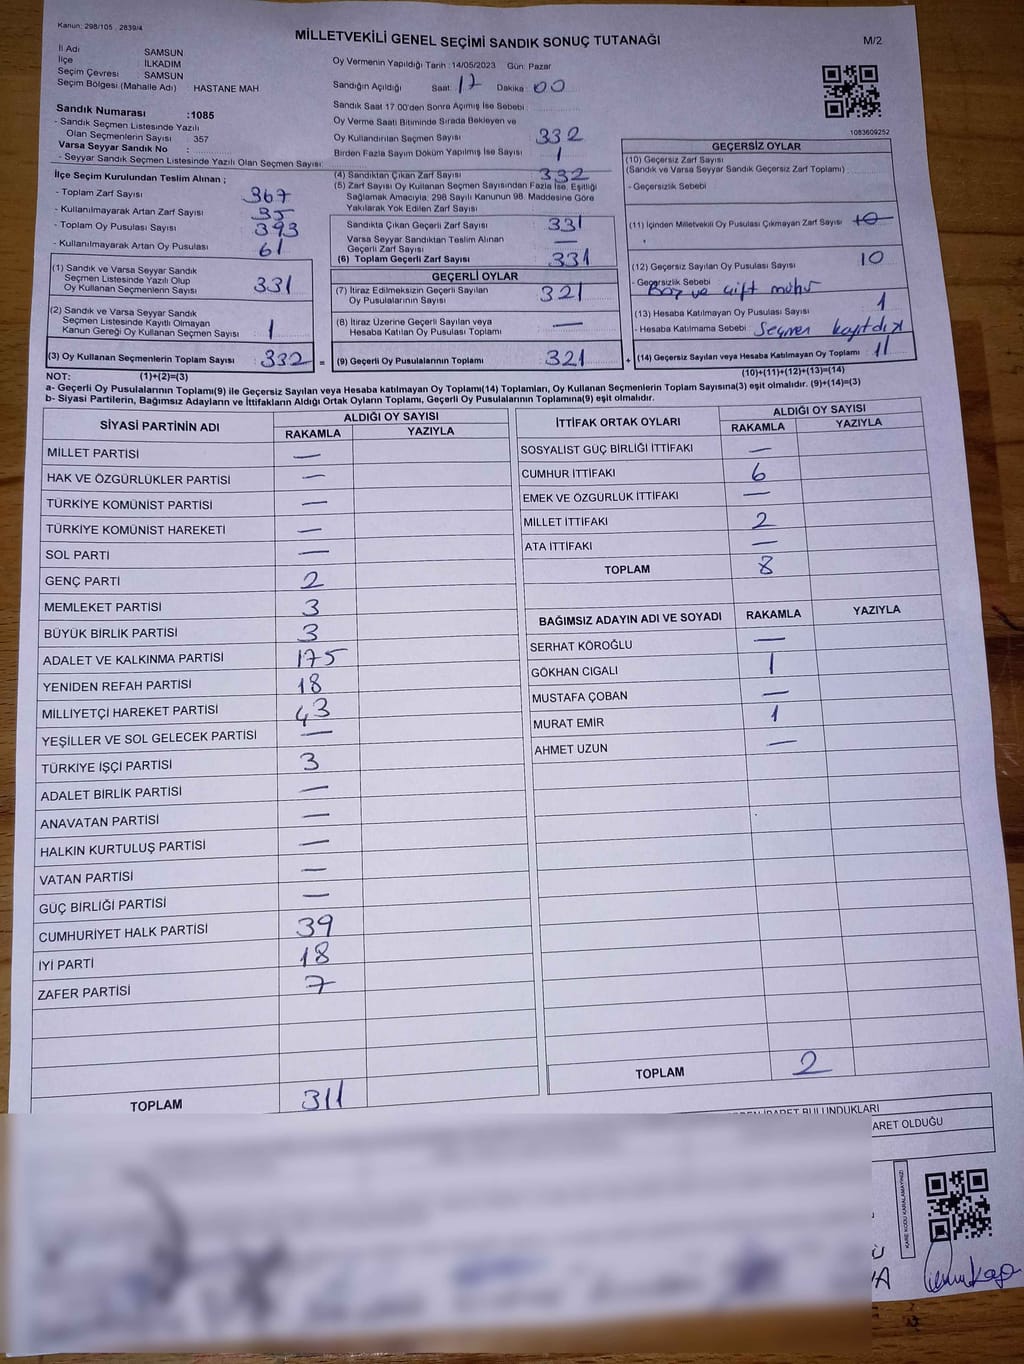 Kanun: 298/105 , 2839/4
MİLLETVEKİLİ GENEL SEÇİMİ SANDIK SONUÇ TUTANAĞI
M/2
İl Adı SAMSUN
İlçe İLKADIM
Seçim Çevresi SAMSUN
Seçim Bölgesi (Mahalle Adı) HASTANE MAH
Sandık Numarası :1085
- Sandık Seçmen Listesinde Yazılı
Olan Seçmenlerin Sayısı 357
Varsa Seyyar Sandık No :
- Seyyar Sandık Seçmen Listesinde Yazılı Olan Seçmen Sayısı:
Oy Vermenin Yapıldığı Tarih :14/05/2023 Gün: Pazar
Sandığın Açıldığı Saat: 17 Dakika: 00
Sandık Saat 17.00'den Sonra Açılmış İse Sebebi :
Oy Verme Saati Bitiminde Sırada Bekleyen ve
Oy Kullandırılan Seçmen Sayısı 332
Birden Fazla Sayım Döküm Yapılmış İse Sayısı 1
(4) Sandıktan Çıkan Zarf Sayısı 332
(5) Zarf Sayısı Oy Kullanan Seçmen Sayısından Fazla İse, Eşitliği
Sağlamak Amacıyla; 298 Sayılı Kanunun 98. Maddesine Göre
Yakılarak Yok Edilen Zarf Sayısı
1083609252
İlçe Seçim Kurulundan Teslim Alınan ;
- Toplam Zarf Sayısı 367
- Kullanılmayarak Artan Zarf Sayısı 35
- Toplam Oy Pusulası Sayısı 393
- Kullanılmayarak Artan Oy Pusulası 61
(1) Sandık ve Varsa Seyyar Sandık
Seçmen Listesinde Yazılı Olup
Oy Kullanan Seçmenlerin Sayısı 331
(2) Sandık ve Varsa Seyyar Sandık
Seçmen Listesinde Kayıtlı Olmayan
Kanun Gereği Oy Kullanan Seçmen Sayısı 1
(3) Oy Kullanan Seçmenlerin Toplam Sayısı 332 =
Sandıkta Çıkan Geçerli Zarf Sayısı 331
Varsa Seyyar Sandıktan Teslim Alınan
Geçerli Zarf Sayısı —
(6) Toplam Geçerli Zarf Sayısı 331
GEÇERLİ OYLAR
(7) İtiraz Edilmeksizin Geçerli Sayılan
Oy Pusulalarının Sayısı 321
(8) İtiraz Üzerine Geçerli Sayılan veya
Hesaba Katılan Oy Pusulası Toplamı —
(9) Geçerli Oy Pusulalarının Toplamı 321 +
GEÇERSİZ OYLAR
(10) Geçersiz Zarf Sayısı
(Sandık ve Varsa Seyyar Sandık Geçersiz Zarf Toplamı)
- Geçersizlik Sebebi
(11) İçinden Milletvekili Oy Pusulası Çıkmayan Zarf Sayısı 10
(12) Geçersiz Sayılan Oy Pusulası Sayısı 10
- Geçersizlik Sebebi Boş ve çift mühür
(13) Hesaba Katılmayan Oy Pusulası Sayısı 1
- Hesaba Katılmama Sebebi Seçmen
(14) Geçersiz Sayılan veya Hesaba Katılmayan Oy Toplamı 11
(10)+(11)+(12)+(13)=(14)
NOT: (1)+(2)=(3)
a- Geçerli Oy Pusulalarının Toplamı(9) ile Geçersiz Sayılan veya Hesaba katılmayan Oy Toplamı(14) Toplamları, Oy Kullanan Seçmenlerin Toplam Sayısına(3) eşit olmalıdır. (9)+(14)=(3)
b- Siyasi Partilerin, Bağımsız Adayların ve İttifakların Aldığı Ortak Oyların Toplamı, Geçerli Oy Pusulalarının Toplamına(9) eşit olmalıdır.
SİYASİ PARTİNİN ADI ALDIĞI OY SAYISI
RAKAMLA YAZIYLA
MİLLET PARTİSİ —
HAK VE ÖZGÜRLÜKLER PARTİSİ —
TÜRKİYE KOMÜNİST PARTİSİ —
TÜRKİYE KOMÜNİST HAREKETİ —
SOL PARTİ —
GENÇ PARTİ 2
MEMLEKET PARTİSİ 3
BÜYÜK BİRLİK PARTİSİ 3
ADALET VE KALKINMA PARTİSİ 175
YENİDEN REFAH PARTİSİ 18
MİLLİYETÇİ HAREKET PARTİSİ 43
YEŞİLLER VE SOL GELECEK PARTİSİ —
TÜRKİYE İŞÇİ PARTİSİ 3
ADALET BİRLİK PARTİSİ —
ANAVATAN PARTİSİ —
HALKIN KURTULUŞ PARTİSİ —
VATAN PARTİSİ —
GÜÇ BİRLİĞİ PARTİSİ —
CUMHURİYET HALK PARTİSİ 39
İYİ PARTİ 18
ZAFER PARTİSİ 7
TOPLAM 311
İTTİFAK ORTAK OYLARI ALDIĞI OY SAYISI
RAKAMLA YAZIYLA
SOSYALİST GÜÇ BİRLİĞİ İTTİFAKI —
CUMHUR İTTİFAKI 6
EMEK VE ÖZGÜRLÜK İTTİFAKI —
MİLLET İTTİFAKI 2
ATA İTTİFAKI —
TOPLAM 8
BAĞIMSIZ ADAYIN ADI VE SOYADI RAKAMLA YAZIYLA
SERHAT KÖROĞLU —
GÖKHAN CIGALI 1
MUSTAFA ÇOBAN —
MURAT EMİR 1
AHMET UZUN —
TOPLAM 2
BULUNDUKLARI
ARET OLDUĞU
KARE KODU KARALAMAYINIZ!